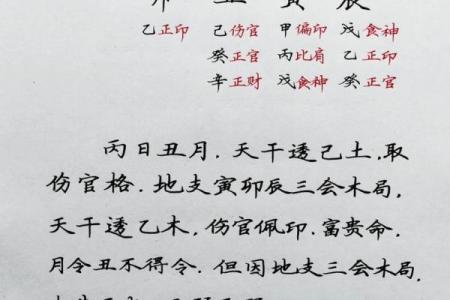 卯 丑 寅 辰
乙正印 己伤官 甲偏印 戊食神
癸正官 丙比肩 乙正印
辛正财 戊食神 癸正官
丙日丑月.天干透己土,取
伤官格.地支寅卯辰三会木局,
天干透乙木,伤官佩印.富贵命.
月令丑不得令.但因地支三会木局,